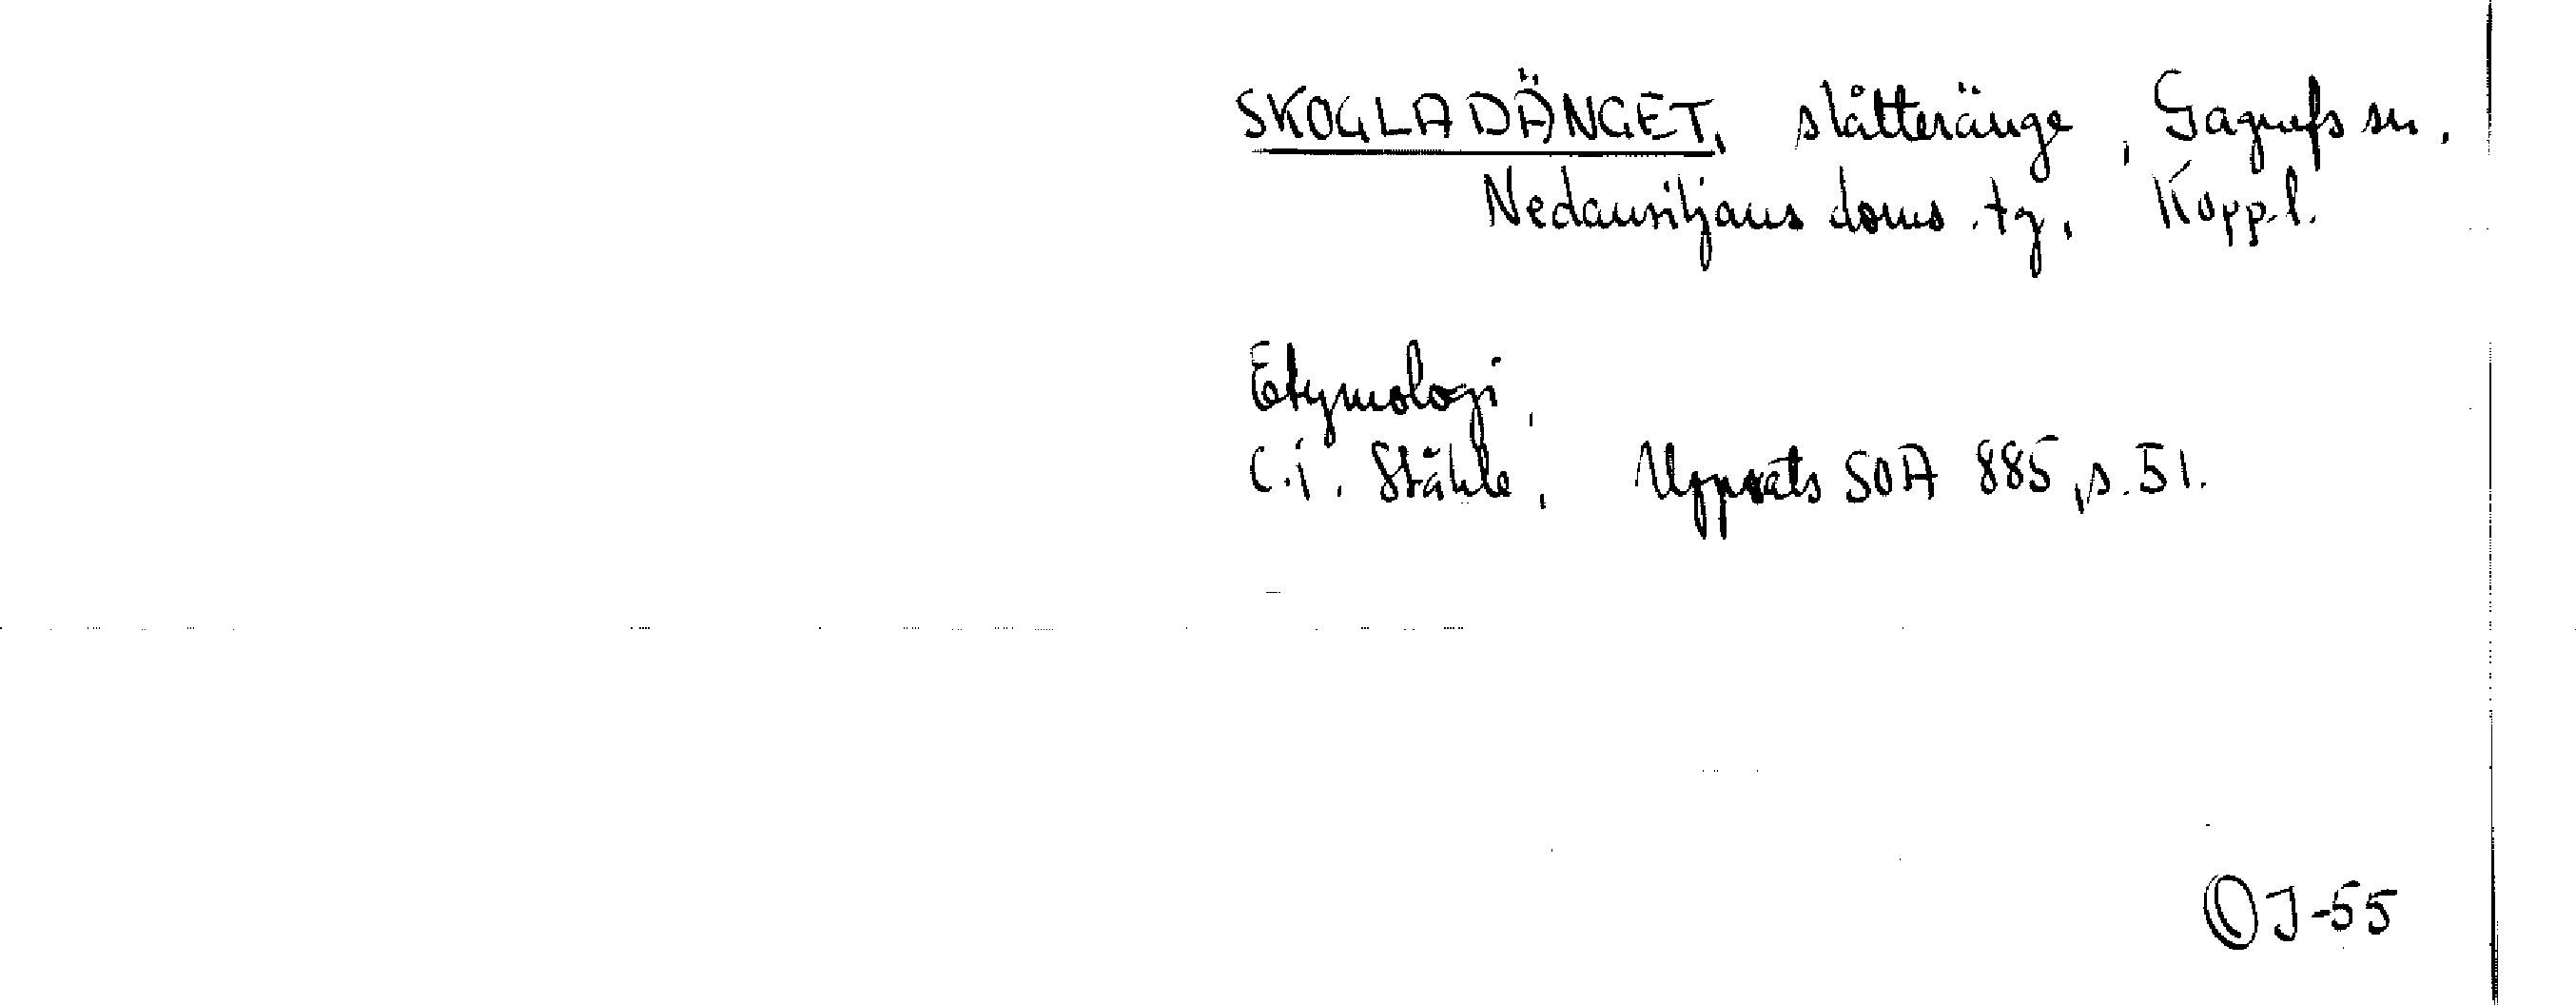 SKOGLADÄNGET, slåtteränge, Gagnefs sn.
Nedansiljans doms.tg, Kopp.l.
Etymologi,
C.I. Ståhle, Uppsats SOA 885, s. 51.
OJ-55